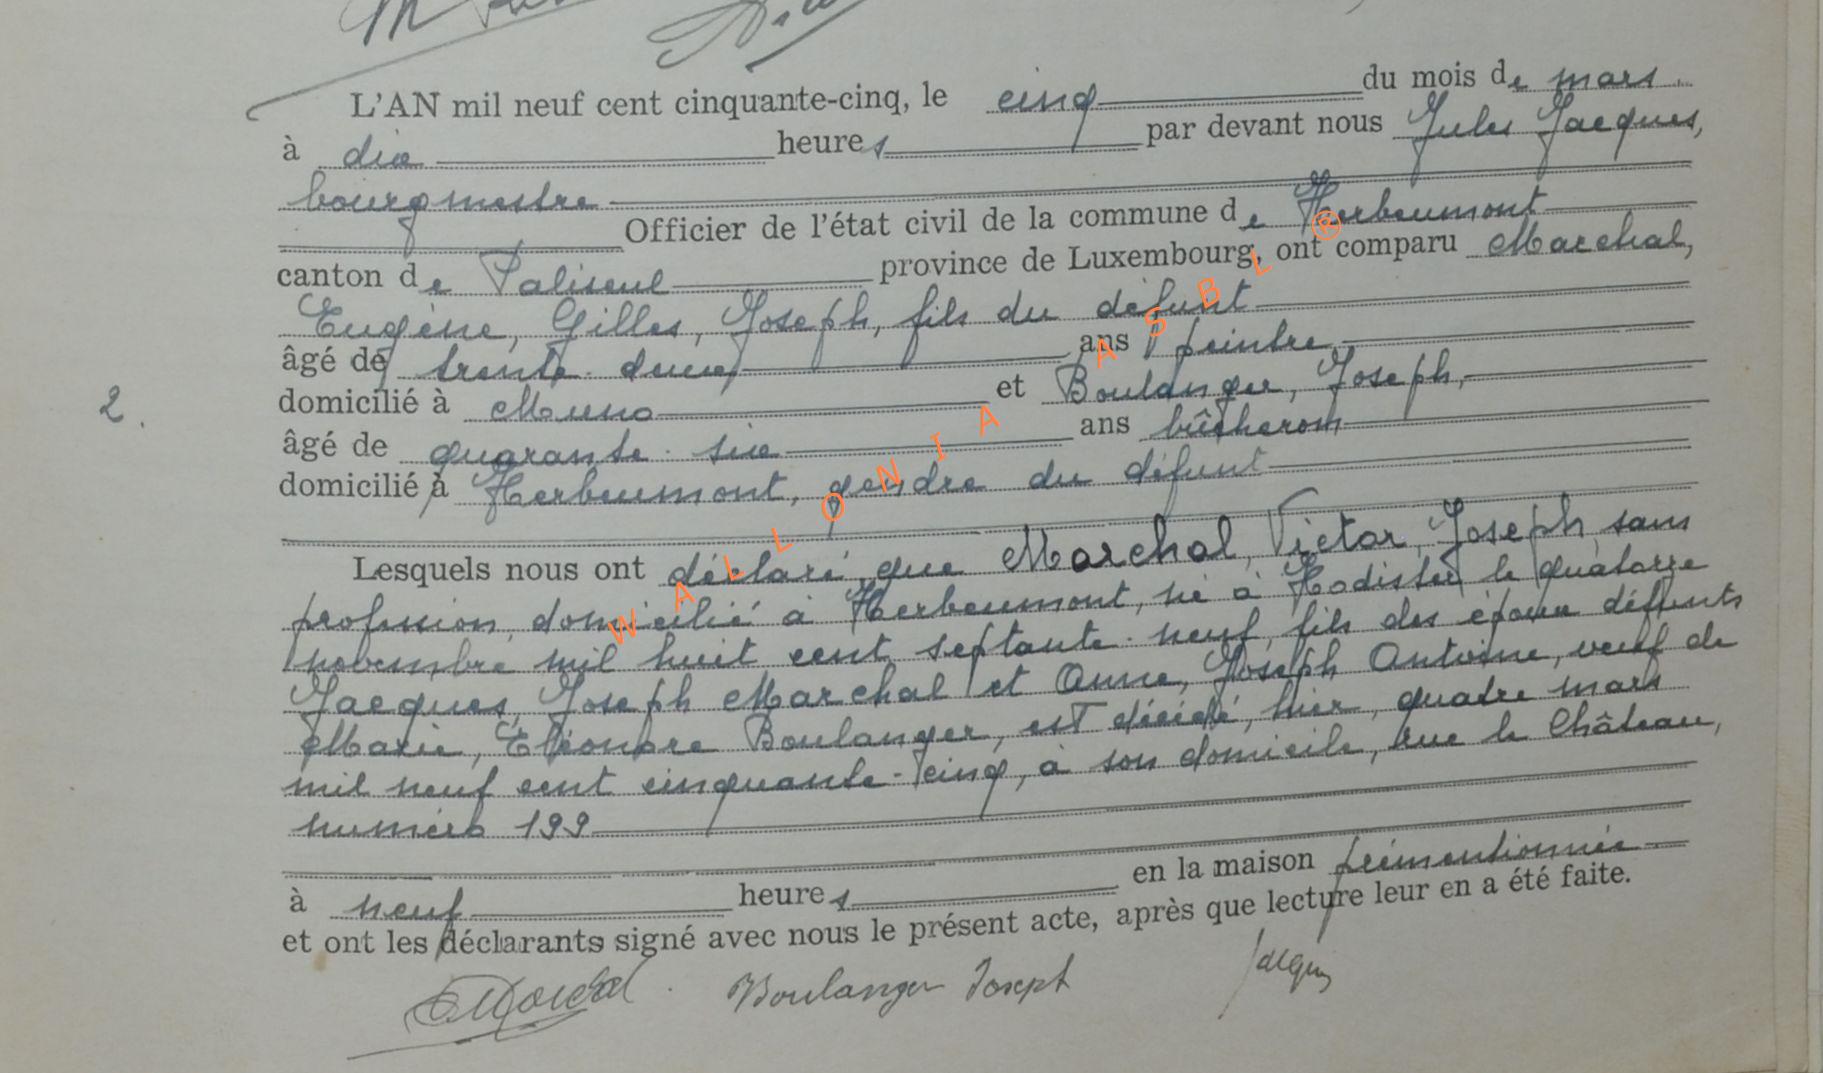 L'AN mil neuf cent cinquante-cinq, le cinq du mois de mars
à dix heures par devant nous Jules Jacques,
bourgmestre
Officier de l'état civil de la commune de Herbeumont
canton de Paliseul province de Luxembourg, ont comparu Marchal,
Eugène, Gilles, Joseph, fils du défunt
âgé de trente-deux ans peintre,
domicilié à Muno et Boulanger, Joseph,
2.
âgé de quarante-six ans bûcheron
domicilié à Herbeumont, gendre du défunt
Lesquels nous ont déclaré que Marchal, Victor, Joseph, sans
profession, domicilié à Herbeumont, né à Hodister le quatorze
novembre mil huit cent septante-neuf, fils des époux défunts
Jacques, Joseph Marchal et Anne, Joseph Antoine, veuf de
Marie, Eléonore Boulanger, est décédé, hier, quatre mars
mil neuf cent cinquante-cinq, à son domicile, rue le Château,
numéro 199
à neuf heures en la maison prémentionnée
et ont les déclarants signé avec nous le présent acte, après que lecture leur en a été faite.
Boulanger Joseph Jacques
WALLONIA ASBL ®